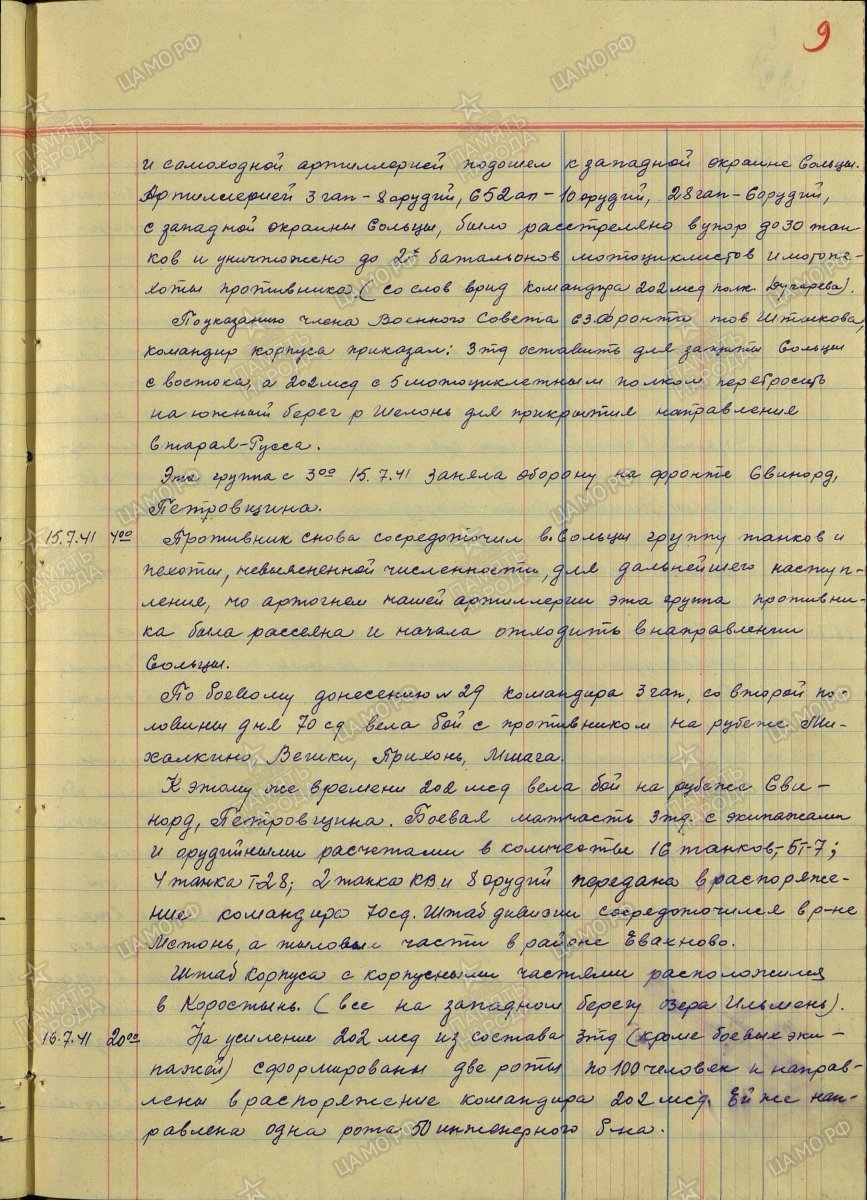 9
и самоходной артиллерией подошел к западной окраине Сольцы.
Артиллерией 3 гап - 8 орудий, 652 ап - 10 орудий, 28 гап - 6 орудий,
с западной окраины Сольцы, было расстреляно в упор до 30 тан
ков и уничтожено до 2х батальонов мотоциклистов и мотопе-
хоты противника (со слов врид командира 202 мсд полк.
По указанию члена Военного Совета СЗ.Фронта тов Штыкова,
командир корпуса приказал: 3 тд оставить для защиты Сольцы
с востока, а 202 мсд с 5 мотоциклетным полком перебросить
на южный берег р Шелонь для прикрытия направления
Старая-Русса.
Эта группа с 3 00 15.7.41 заняла оборону на фронте Свинорд,
Петровщина.
15.7.41 4 00 Противник снова сосредоточил в Сольцы группу танков и
пехоты, невыясненной численности, для дальнейшего наступ-
ления, но артогнем нашей артиллерии эта группа противни-
ка была рассеяна и начала отходить в направлении
Сольцы.
По боевому донесению № 29 командира 3 гап, со второй по-
ловины дня 70 сд вела бой с противником на рубеже Ми-
халкино, Вешки, Прихонь, Мшага.
К этому же времени 202 мсд вела бой на рубеже Сви-
норд, Петровщина. Боевая матчасть 3 тд. с экипажами
и орудийными расчетами в количестве 16 танков,- БТ-7;
4 танка Т-28; 2 танка КВ и 8 орудий передана в распоряже-
ние командира 70 сд. Штаб дивизии сосредоточился в р-не
Мстонь, а тыловые части в районе Евахново.
Штаб корпуса с корпусными частями расположился
в Коростынь. (все на западном берегу озера Ильмень).
16.7.41 20 00 На усиление 202 мсд из состава 3 тд (кроме боевых эки-
пажей) сформированы две роты по 100 человек и направ-
лены в распоряжение командира 202 мсд. Ей же нап-
равлена одна рота 50 инженерного б-на.
ПАМЯТЬ НАРОДА
ЦАМО.РФ